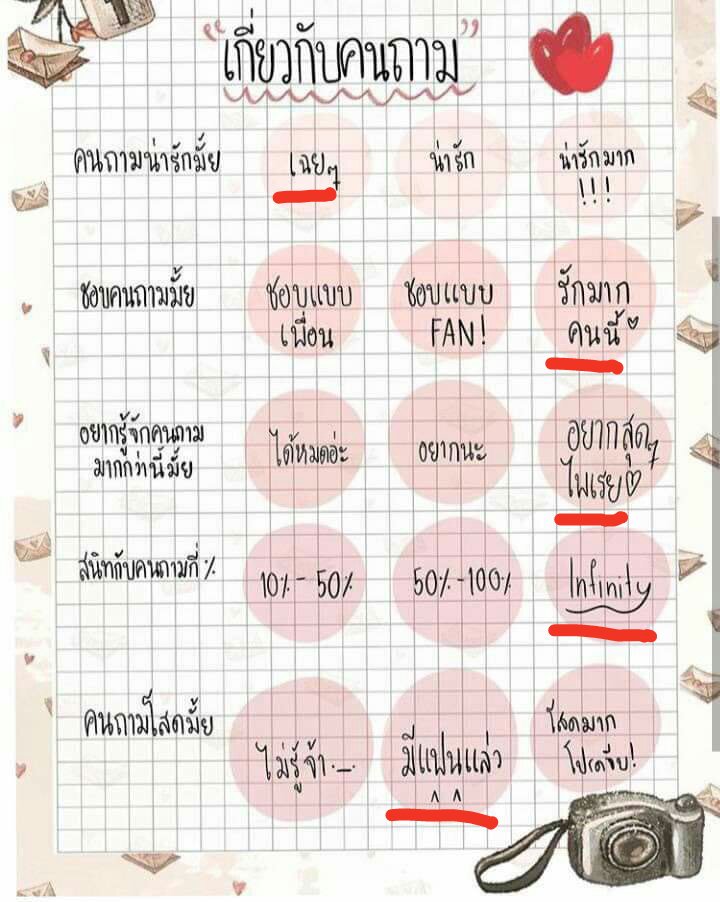 "เกี่ยวกับคนถาม"
คนถามน่ารักมั้ย
เฉยๆ
น่ารัก
น่ารักมาก
!!!
ชอบคนถามมั้ย
ชอบแบบ
เพื่อน
ชอบแบบ
FAN!
รักมาก
คนนี้
อยากรู้จักคนถาม
มากกว่านี้มั้ย
ได้หมดอ่ะ
อยากนะ
อยากสุดๆ
ไพเรย
สนิทกับคนถามกี่%
10%-50%
50%-100%
Infinity
คนถามโสดมั้ย
ไม่รู้จ้า._.
มีแฟนแล่ว
^ ^
โสดมาก
โปรดจีบ!